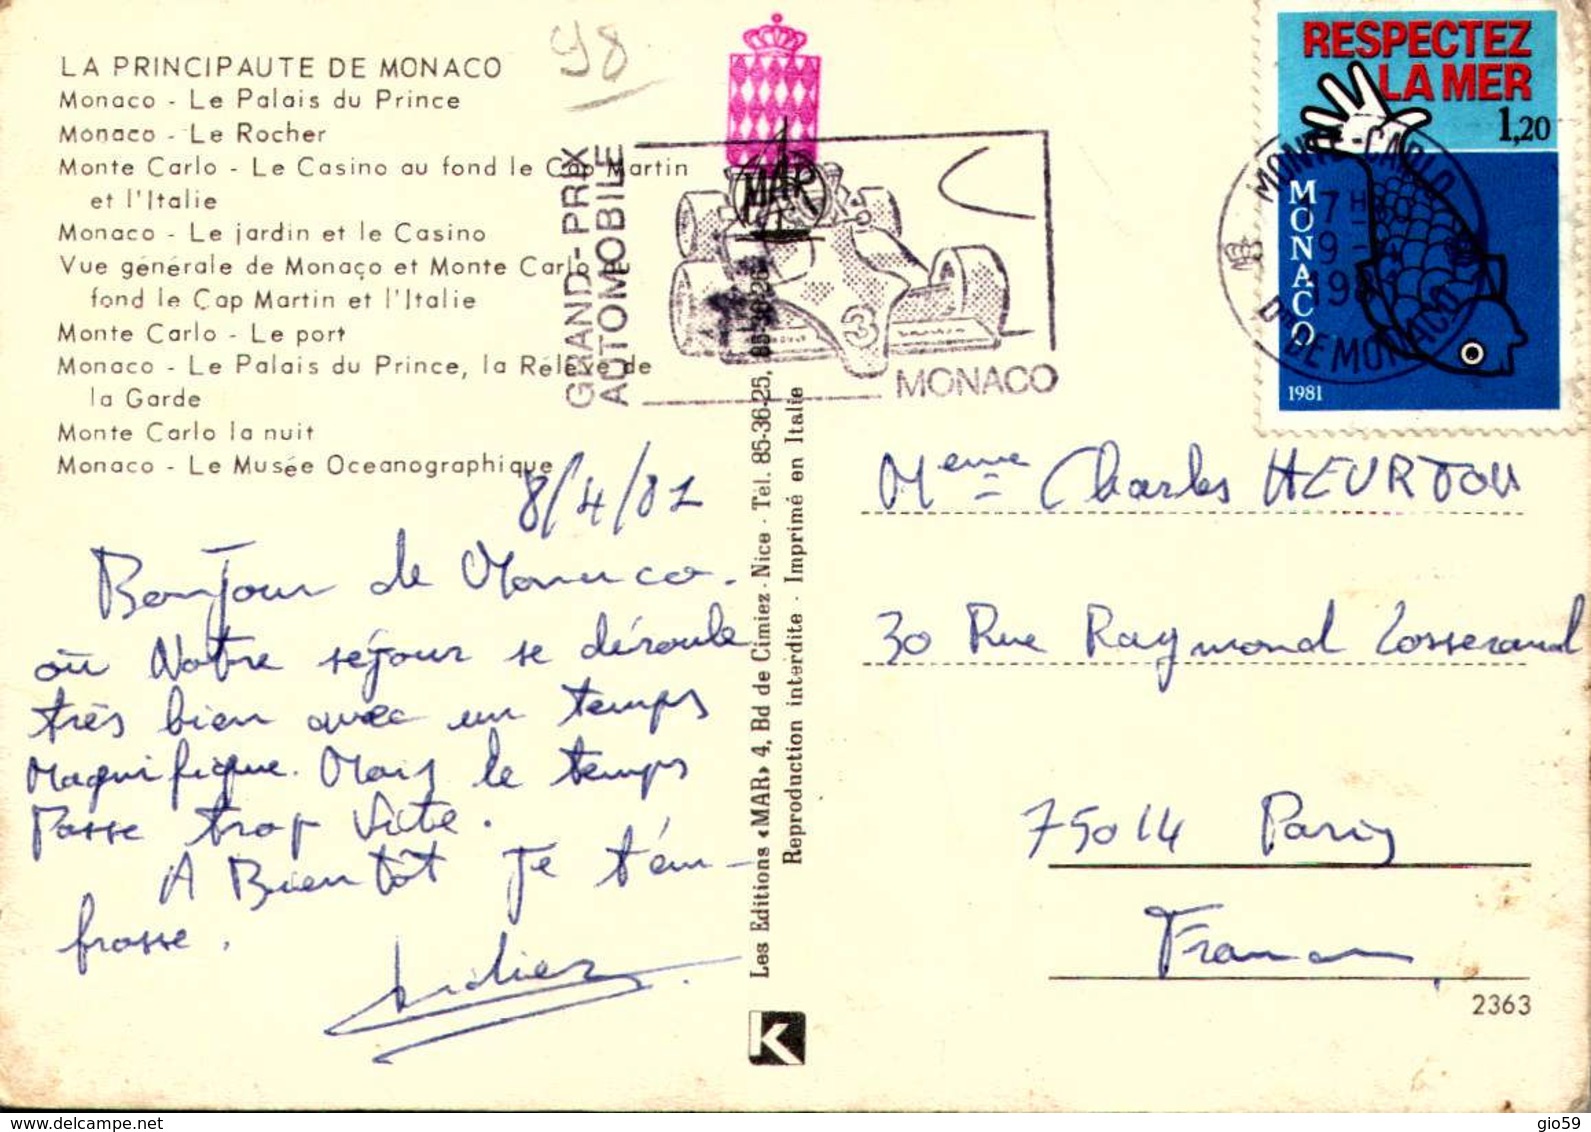 LA PRINCIPAUTE DE MONACO
Monaco - Le Palais du Prince
Monaco - Le Rocher
Monte Carlo - Le Casino au fond le Cap Martin
et l'Italie
Monaco - Le jardin et le Casino
Vue générale de Monaço et Monte Carlo le
fond le Cap Martin et l'Italie
Monte Carlo - Le port
Monaco - Le Palais du Prince, la Rélève de
la Garde
Monte Carlo la nuit
Monaco - Le Musée Oceanographique
98
8/4/81
Bonjour de Monaco.
où Notre séjour se déroule
très bien avec un temps
Magnifique. Mais le temps
Passe trop Vite.
A Bientôt Je t'em-
brasse.
Didier
GRAND-PRIX
AUTOMOBILE
MAR
3
MONACO
Les Editions «MAR» 4, Bd de Cimiez - Nice - Tél. 85-36-25, 85-36-26
Reproduction interdite - Imprimé en Italie
K
RESPECTEZ
LA MER
1,20
MONACO
1981
MONTE-CARLO
17H
9 - 4
1981
Pté DE MONACO
Meme Charles HEURTOU
30 Rue Raymond Losserand
75014 Paris
France
2363
delcampe.net
gio59